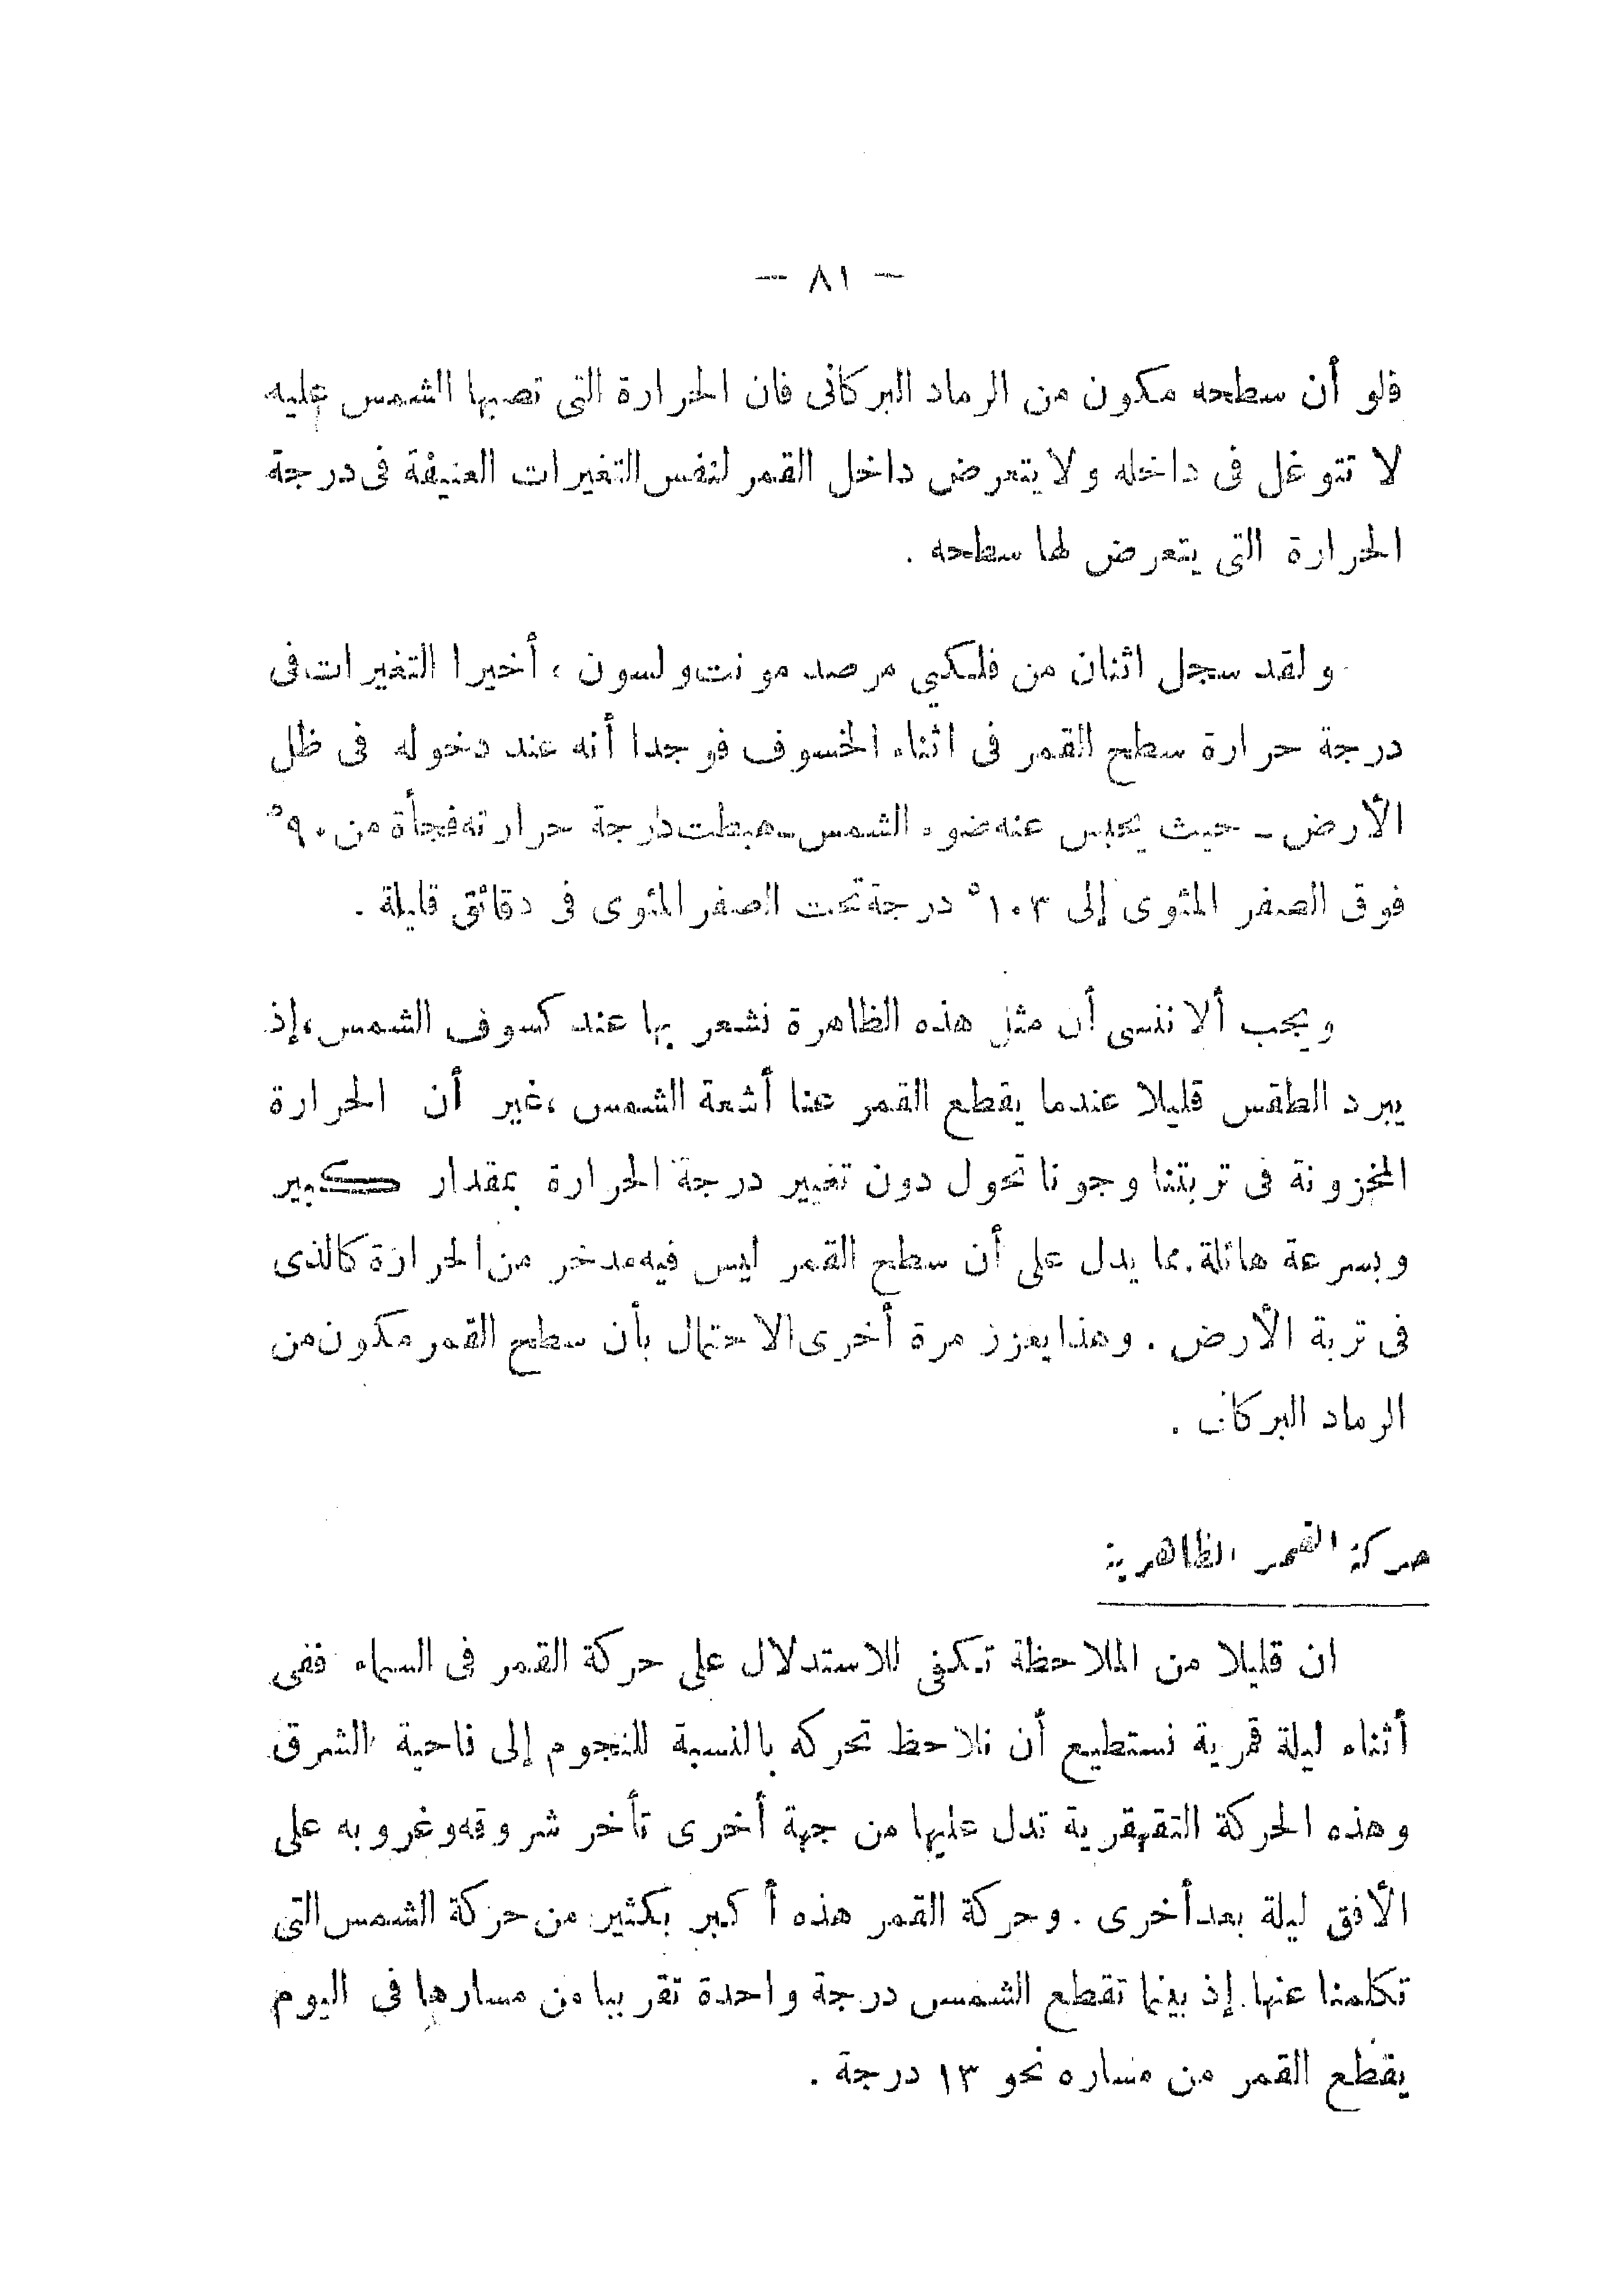 — ٨١ —
فلو أن سطحه مكون من الرماد البركانى فان الحرارة التى تصبها الشمس عليه
لا تتوغل فى داخله ولا يتعرض داخل القمر لنفس التغيرات العنيفة فى درجة
الحرارة التى يتعرض لها سطحه .
ولقد سجل اثنان من فلكي مرصد مونت ولسون ، أخيرا التغيرات فى
درجة حرارة سطح القمر فى اثناء الخسوف فوجدا أنه عند دخوله فى ظل
الأرض ـ حيث يحبس عنه ضوء الشمس ـ هبطت درجة حرارته فجأة من ٩٠°
فوق الصفر المئوى إلى ١٠٣° درجة تحت الصفر المئوى فى دقائق قليلة .
ويجب ألا ننسى أن مثل هذه الظاهرة نشعر بها عند كسوف الشمس ، إذ
يبرد الطقس قليلا عندما يقطع القمر عنا أشعة الشمس ، غير أن الحرارة
المخزونة فى تربتنا وجونا تحول دون تغيير درجة الحرارة بمقدار كبير
وبسرعة هائلة . مما يدل على أن سطح القمر ليس فيه مدخر من الحرارة كالذى
فى تربة الأرض . وهذا يعزز مرة أخرى الاحتمال بأن سطح القمر مكون من
الرماد البركان .
حركة القمر الظاهرية
ان قليلا من الملاحظة تكفى للاستدلال على حركة القمر فى السماء ففى
أثناء ليلة قمرية نستطيع أن نلاحظ تحركه بالنسبة للنجوم إلى ناحية الشرق
وهذه الحركة التقهقرية تدل عليها من جهة أخرى تأخر شروقه وغروبه على
الأفق ليلة بعد أخرى . وحركة القمر هذه أكبر بكثير من حركة الشمس التى
تكلمنا عنها . إذ بينما تقطع الشمس درجة واحدة تقريبا من مسارها فى اليوم
يقطع القمر من مساره نحو ١٣ درجة .